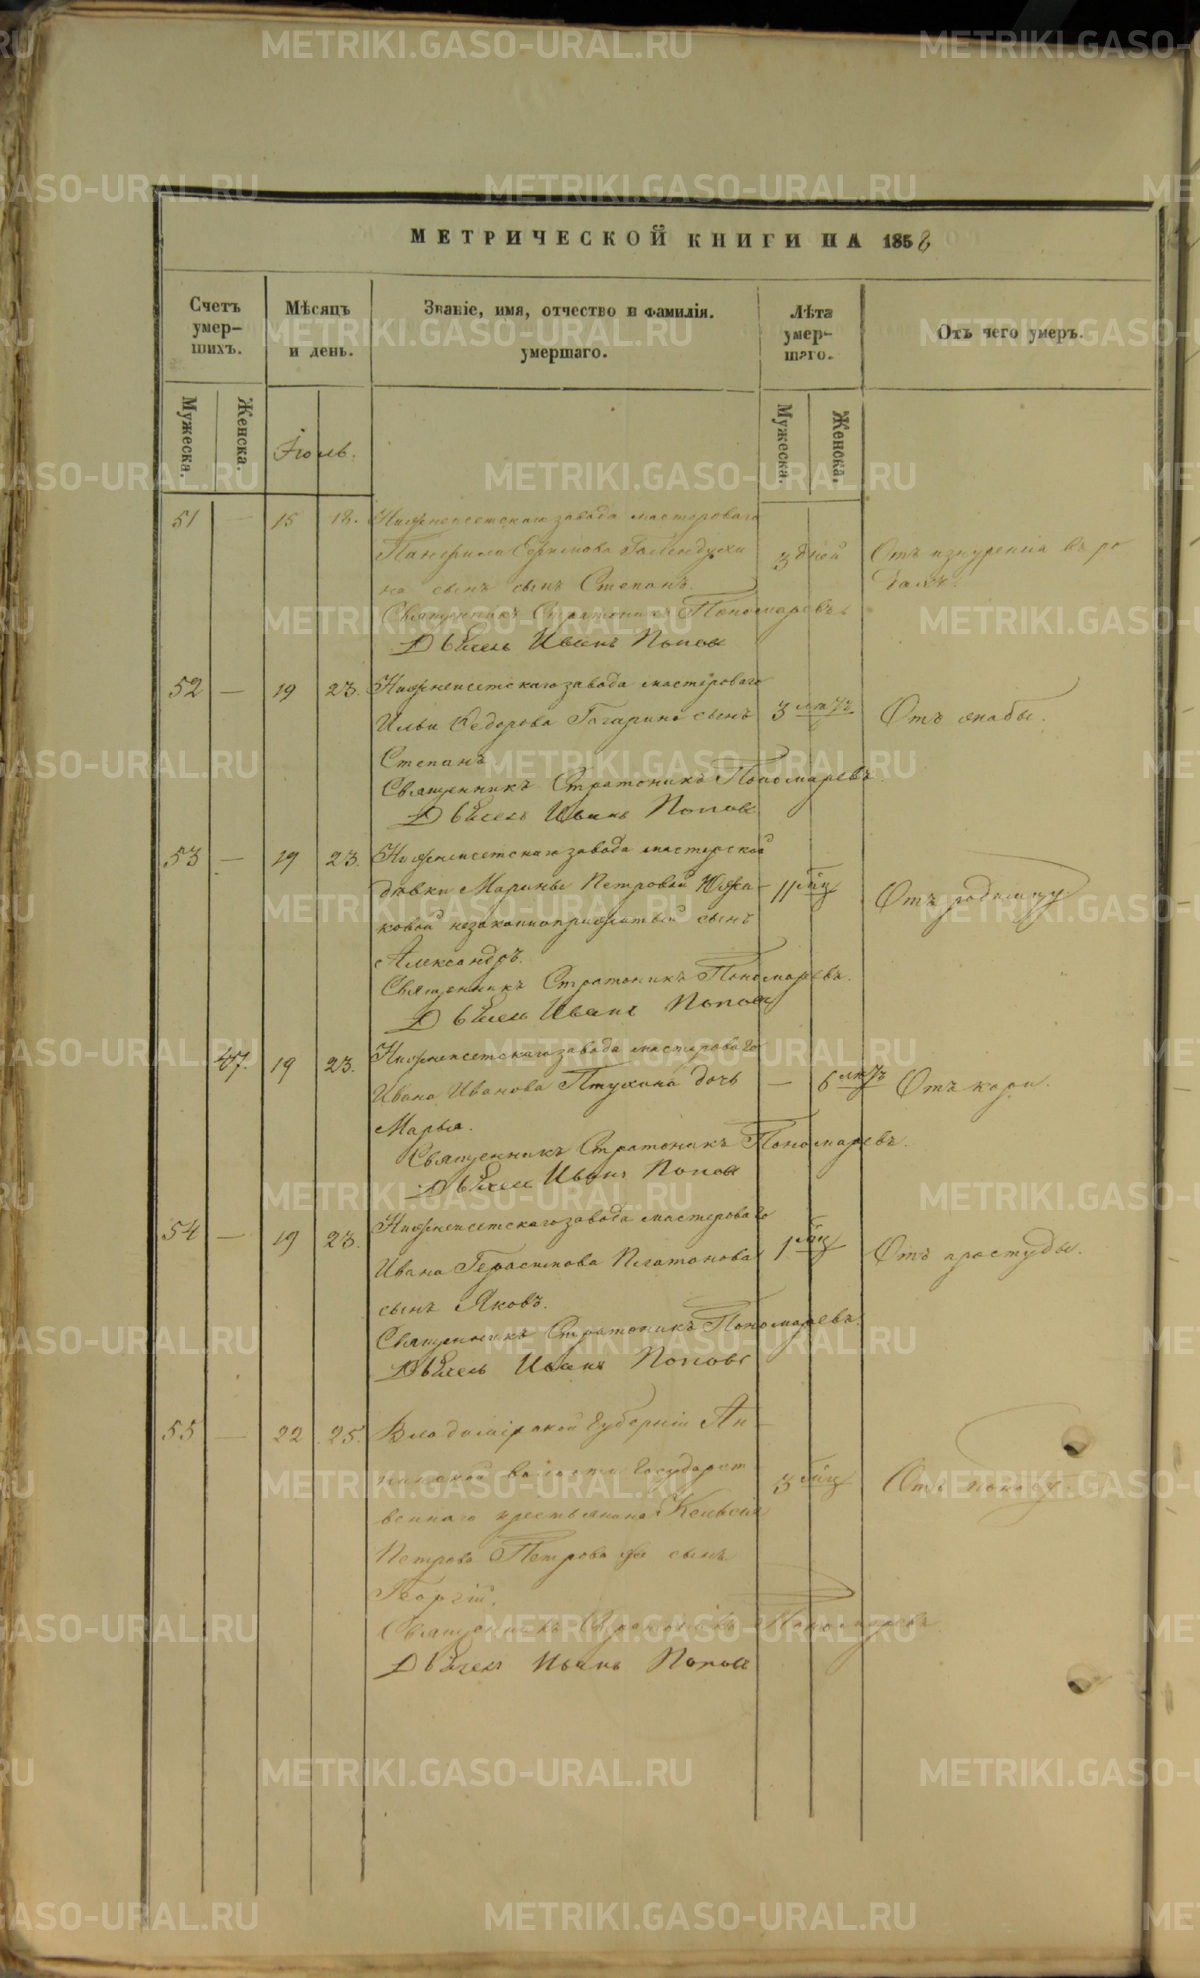 МЕТРИЧЕСКОЙ КНИГИ НА 1858
Счетъ умер-шихъ.
Мѣсяцъ и день.
Званіе, имя, отчество и фамилія. умершаго.
Лѣта умер-шаго.
Отъ чего умеръ.
Мужеска.
Женска.
Іюль.
Мужеска.
Женска.
51 — 15 18. Нижнеисетскаго завода мастероваго
Панфила Ефимова Галендухи 3 дней Отъ изнуренія въ ро
на сынъ сынъ Степанъ. дахъ.
Священникъ Стратоникъ Пономаревъ
Дьячекъ Иванъ Попов
52 — 19 23. Нижнеисетскаго завода мастероваго
Ильи Федорова Гагарина сынъ 3 лѣтъ Отъ жабы.
Степанъ
Священникъ Стратоникъ Пономаревъ
Дьячекъ Иванъ Попов
53 — 19 23. Нижнеисетскаго завода мастерской
дѣвки Марины Петровой Южа- 11 мѣц Отъ родимцу
ковой незаконноприжитый сынъ
Александръ.
Священникъ Стратоникъ Пономаревъ.
Дьячекъ Иванъ Попов
47. 19 23. Нижнеисетскаго завода мастероваго
Ивана Иванова Птухина дочь — 6 лѣтъ Отъ кори.
Марья.
Священникъ Стратоникъ Пономаревъ.
Дьячекъ Иванъ Попов
54 — 19 23. Нижнеисетскаго завода мастероваго
Ивана Герасимова Платонова 1 мѣц Отъ простуды.
сынъ Яковъ.
Священникъ Стратоникъ Пономаревъ.
Дьячекъ Иванъ Поповъ
55 — 22 25. Владимірской Губерніи
волости Государст 3 мѣц Отъ поносу.
веннаго крестьянина
Петрова Петрова же сынъ
Георгій.
Священникъ Стратоникъ Пономаревъ.
Дьячекъ Иванъ Попов
METRIKI.GASO-URAL.RU